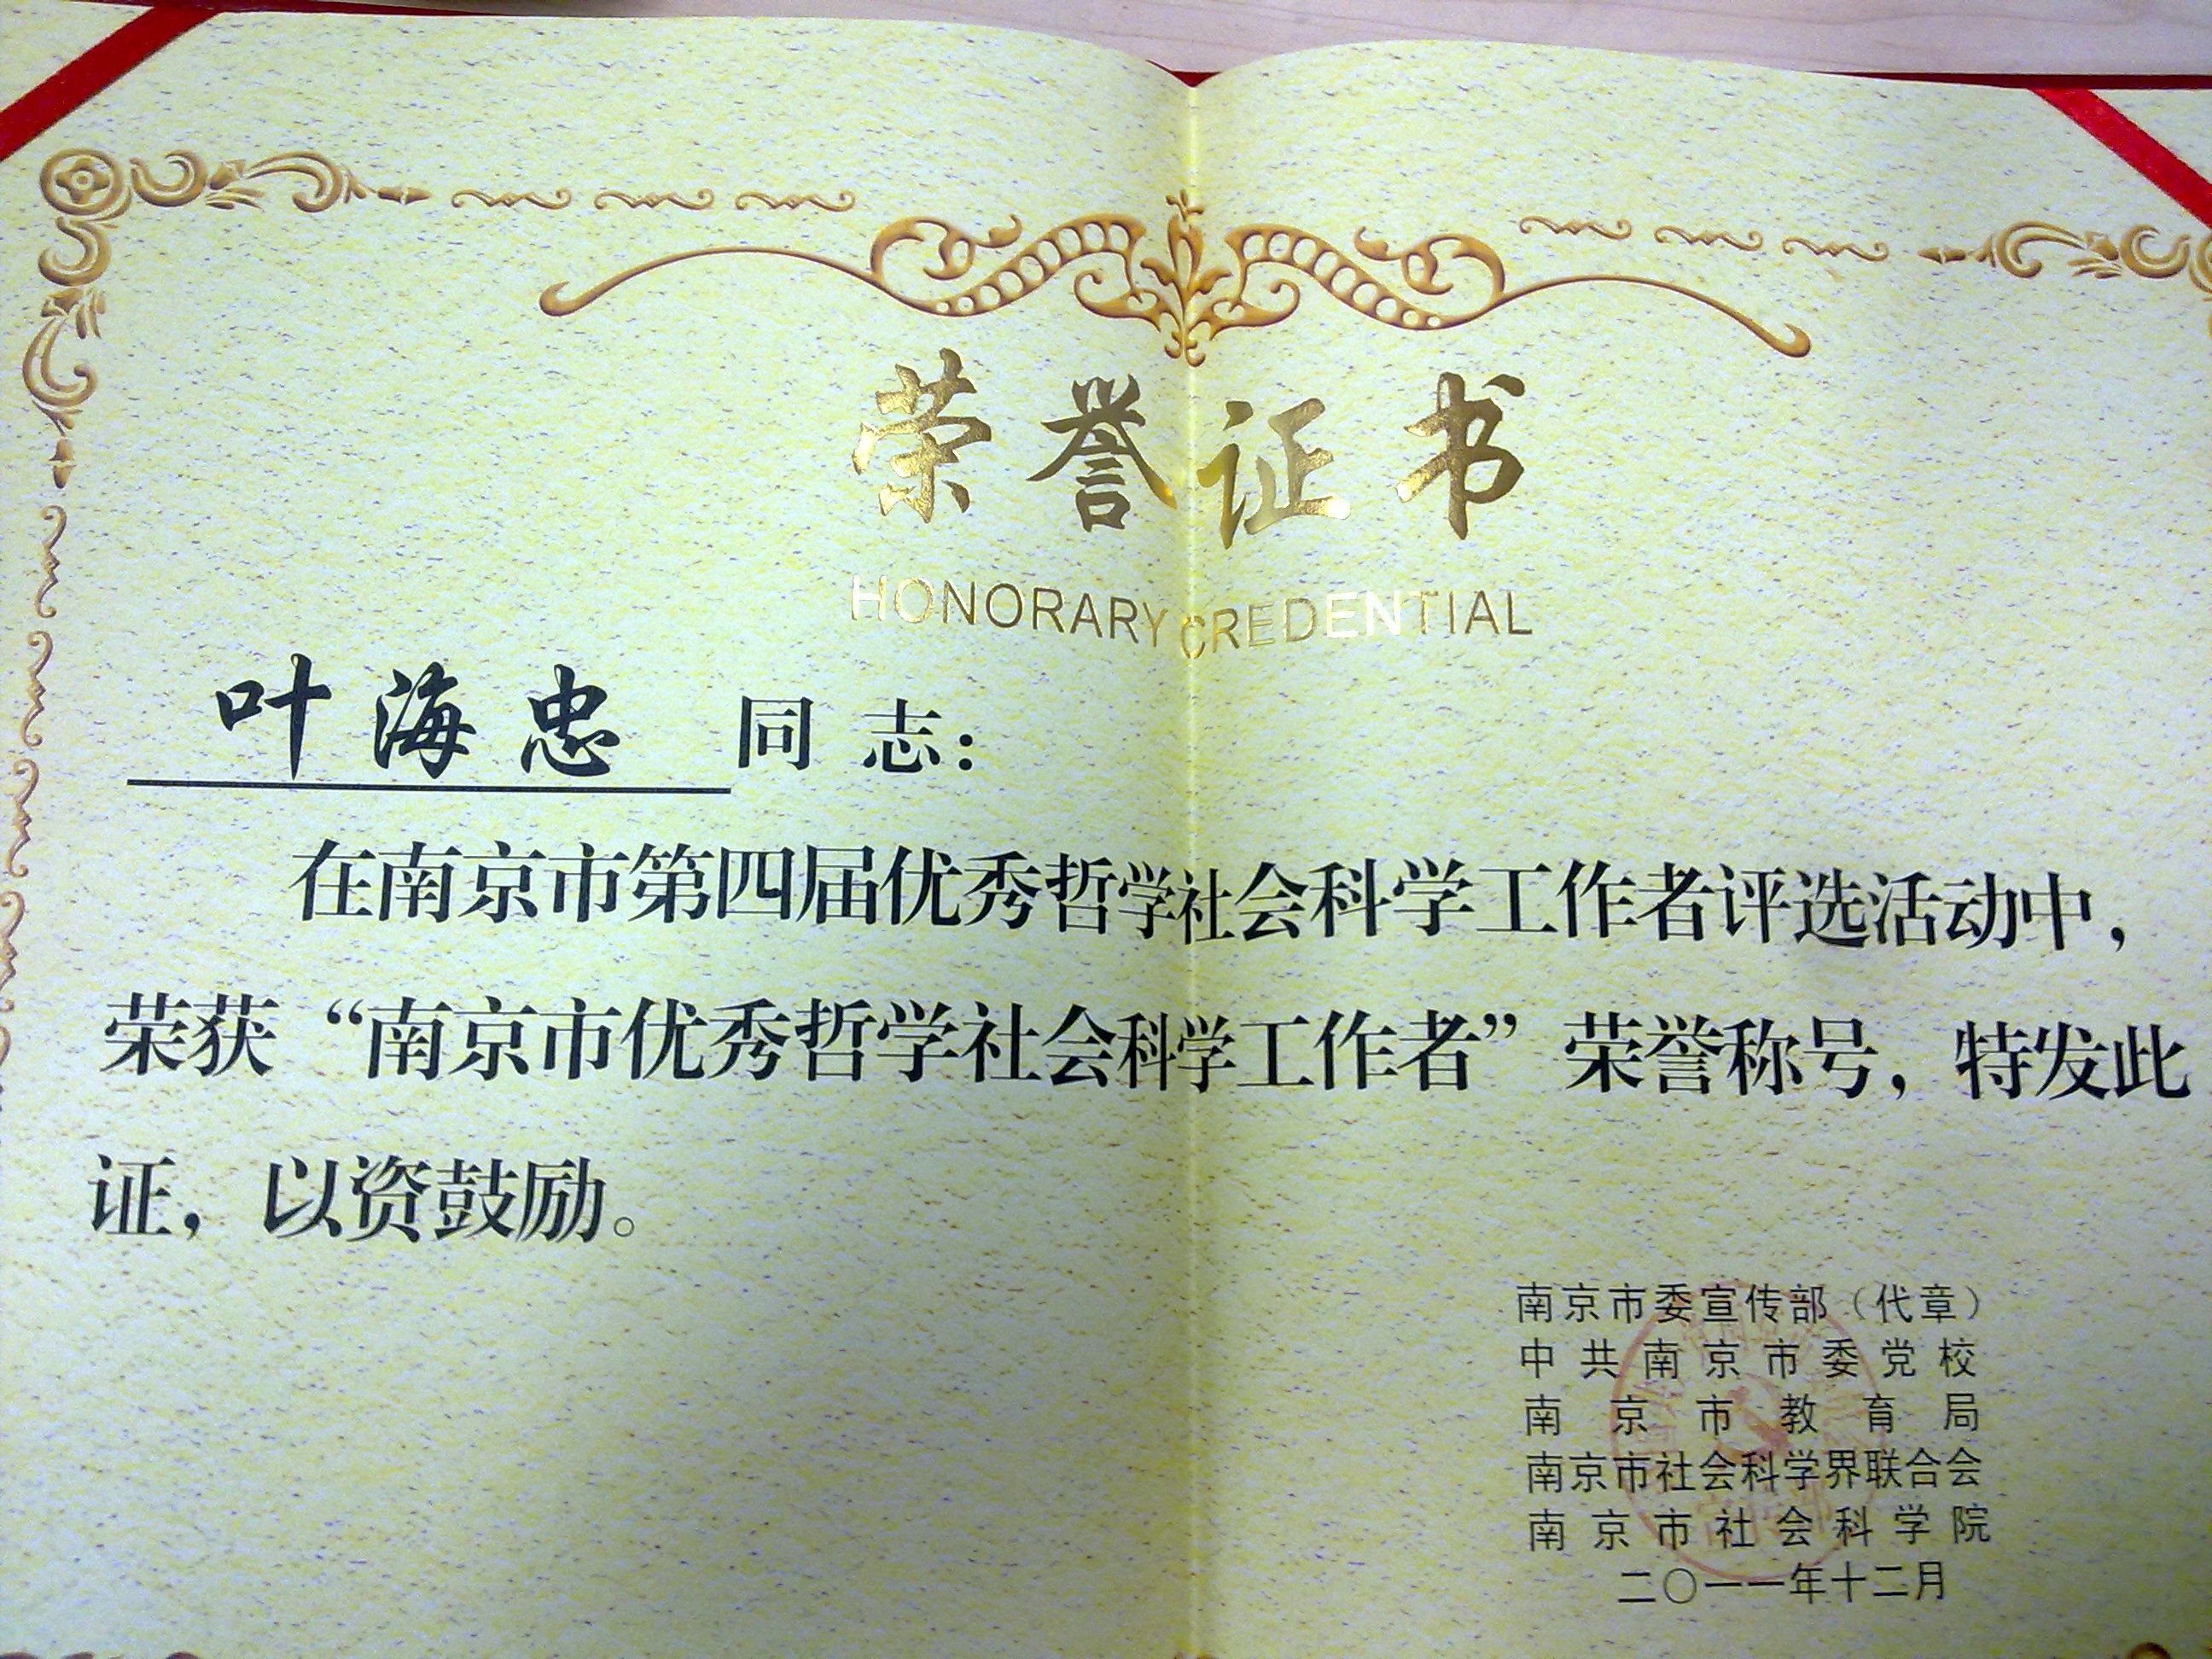 荣誉证书
HONORARY CREDENTIAL
叶海忠 同志：
在南京市第四届优秀哲学社会科学工作者评选活动中，
荣获“南京市优秀哲学社会科学工作者”荣誉称号，特发此
证，以资鼓励。
南京市委宣传部（代章）
中共南京市委党校
南京市教育局
南京市社会科学界联合会
南京市社会科学院
二〇一一年十二月